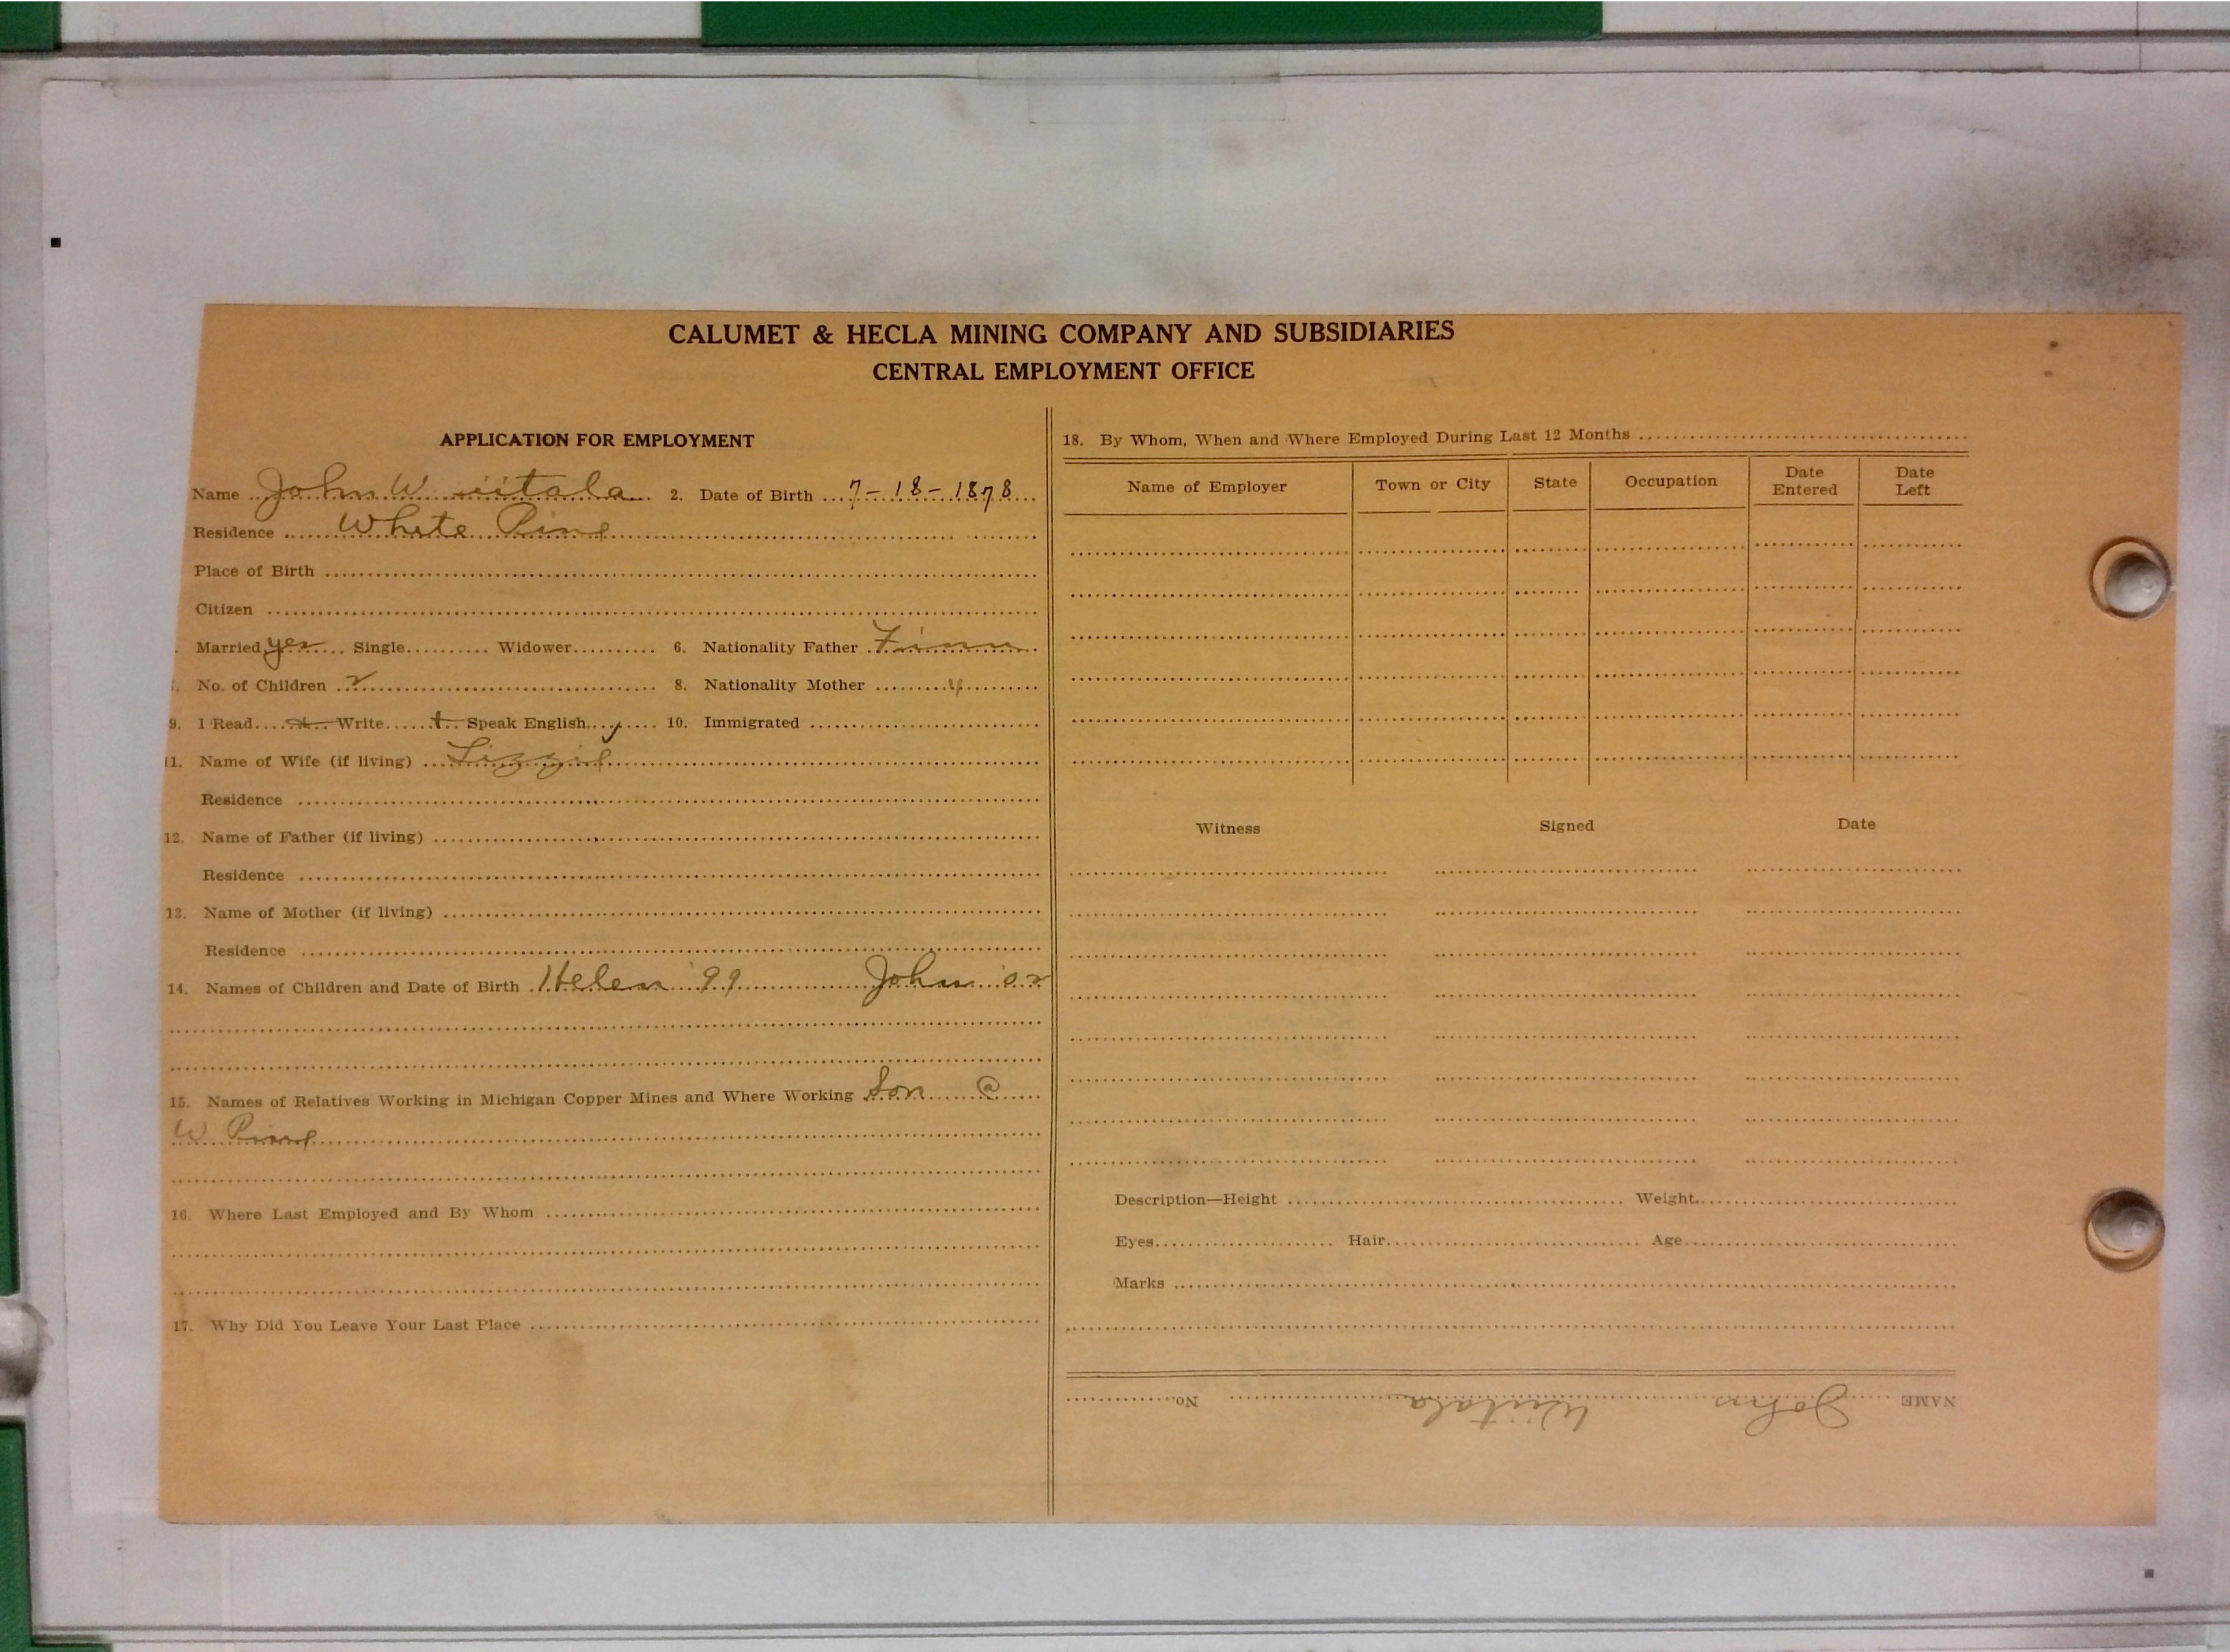 CALUMET & HECLA MINING COMPANY AND SUBSIDIARIES
CENTRAL EMPLOYMENT OFFICE
APPLICATION FOR EMPLOYMENT
Name John Wiitala 2. Date of Birth 7-18-1878
Residence White Pine
Place of Birth
Citizen
Married yes Single Widower 6. Nationality Father Finn
No. of Children 2 8. Nationality Mother "
9. I Read Write Speak English y 10. Immigrated
11. Name of Wife (if living) Lizzie
Residence
12. Name of Father (if living)
Residence
13. Name of Mother (if living)
Residence
14. Names of Children and Date of Birth Helen '99 John '02
15. Names of Relatives Working in Michigan Copper Mines and Where Working Son @
W Pine
16. Where Last Employed and By Whom
17. Why Did You Leave Your Last Place
18. By Whom, When and Where Employed During Last 12 Months
Name of Employer Town or City State Occupation Date Entered Date Left
Witness Signed Date
Description—Height Weight
Eyes Hair Age
Marks
NAME John Wiitala No.